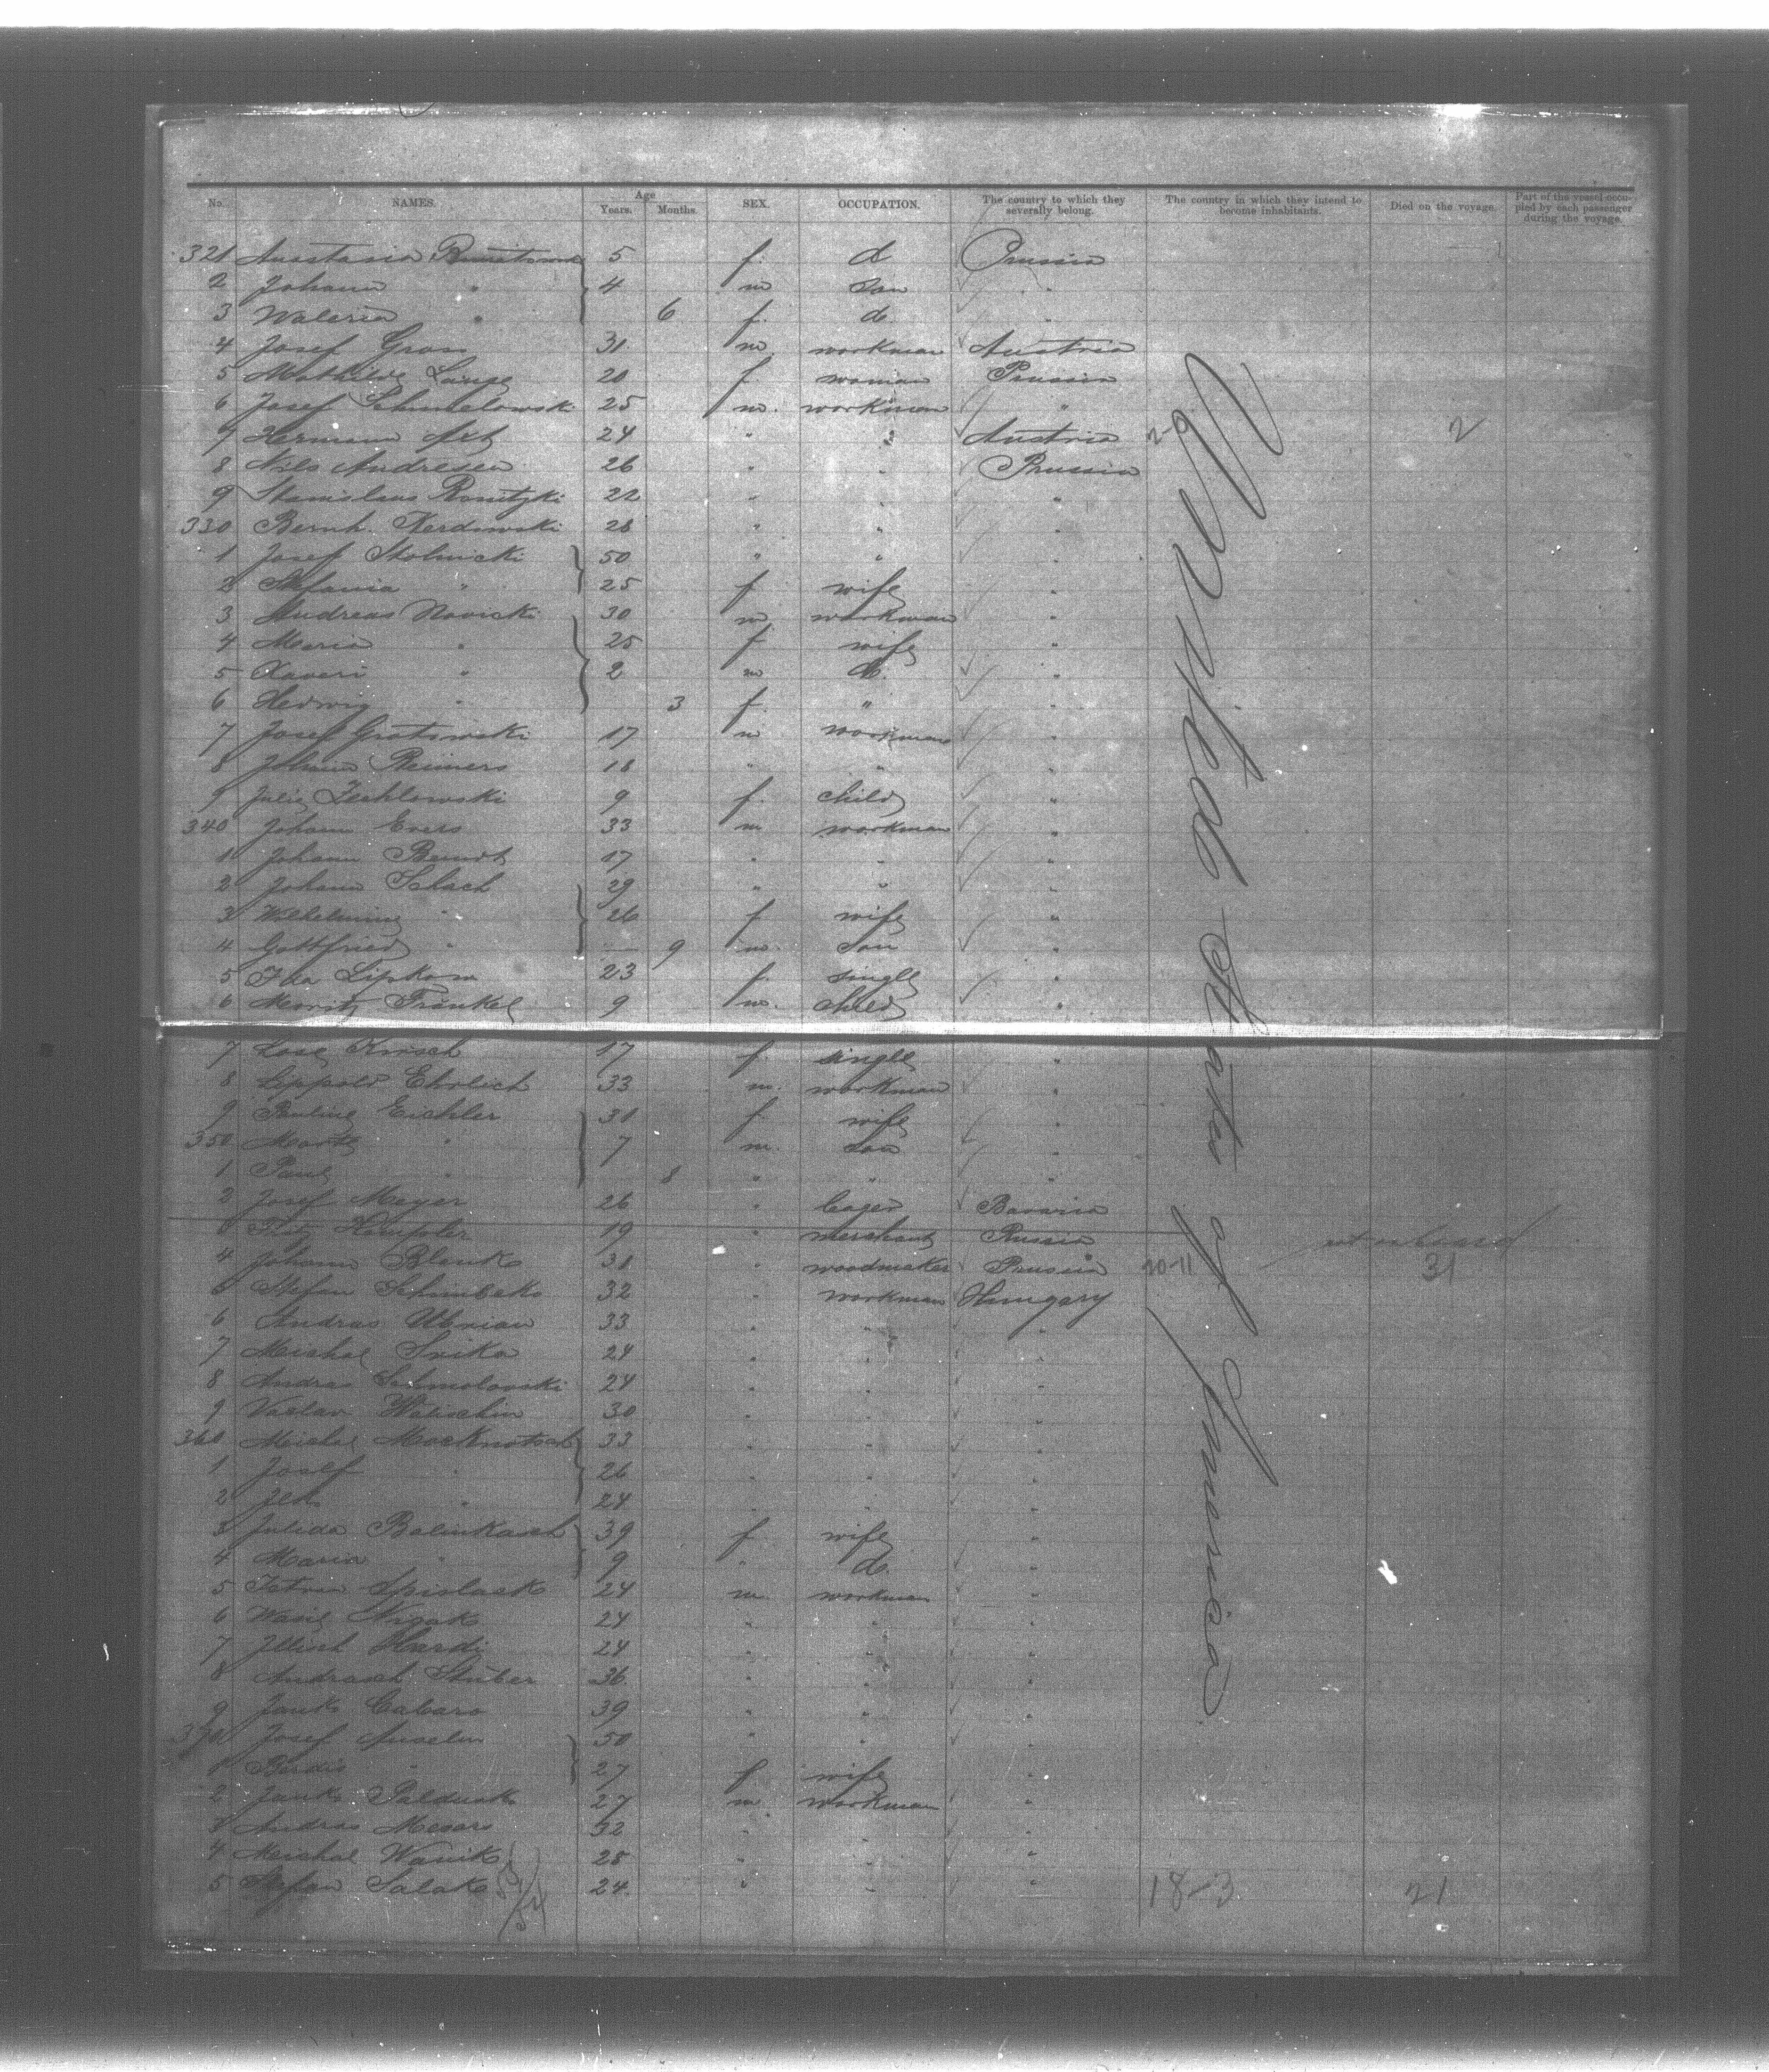 No. NAMES. Age Years. Months. SEX. OCCUPATION. The country to which they severally belong. The country in which they intend to become inhabitants. Died on the voyage. Part of the vessel occupied by each passenger during the voyage.
321 Anastasia 5 f. d Prussia
2 Johann " 4 m son "
3 Waleria " 6 f. d. "
4 Josef Gron 31 m. workman Austria
5 Mathilde Lange 20 f. woman Prussia
6 Josef Schmelowski 25 m. workman "
7 Hermann 24 " " Austria 2-0 2
8 Nils Andresen 26 " " Prussia
9 Stanislaus 22 " " "
330 Bernh. 26 " " "
1 Josef Stolnicki 50 " " "
2 Stefania " 25 f wife "
3 Andreas Novicki 30 m workman "
4 Maria " 25 f wife "
5 Xaveri " 2 m d. "
6 Hedwig " 3 f. " "
7 Josef Grotowski 17 m workman "
8 Johann Reimers 18 " " "
9 Julie Zechlowski 9 f. child "
340 Johann Evers 33 m workman "
1 Johann Berndt 17 " " "
2 Johann Schach 29 " " "
3 Wilhelmine " 26 f wife "
4 Gottfried " 9 m. son "
5 Ida Lipkow 23 f. single "
6 Moritz Fränkel 9 m. child "
7 Kirsch 17 f single "
8 Leppold Ehrlich 33 m. workman "
9 Pauline Eichler 31 f wife "
350 " 7 m. son "
1 Paul " 8 " " "
2 Josef Meyer 26 " Bavaria
Fritz 19 " merchant Russia not on board
4 Johann Blank 31 " woodmaker Prussia 20-11 31
5 Stefan 32 " workman Hungary
6 Andras 33 " " "
7 Michal Svika 24 " " "
8 Andras Schmolovski 24 " " "
9 Vaclav 30 " " "
360 Michal 33 " " "
1 Josef " 26 " " "
2 " 24 " " "
3 Julida Balinkasch 39 f wife "
4 Maria " 9 " d. "
5 24 m. workman "
6 Wasil 24 " " "
7 24 " " "
8 Andrasch Stuber 36 " " "
9 Janko 39 " " "
370 Josef 50 " " "
1 " 27 f wife "
2 Janko 27 m. workman "
3 Andras Mesaro 32 " " "
4 Michal Wanik 28 " " "
5 Stefan Salak 24 " " " 18-3 21
United States of America